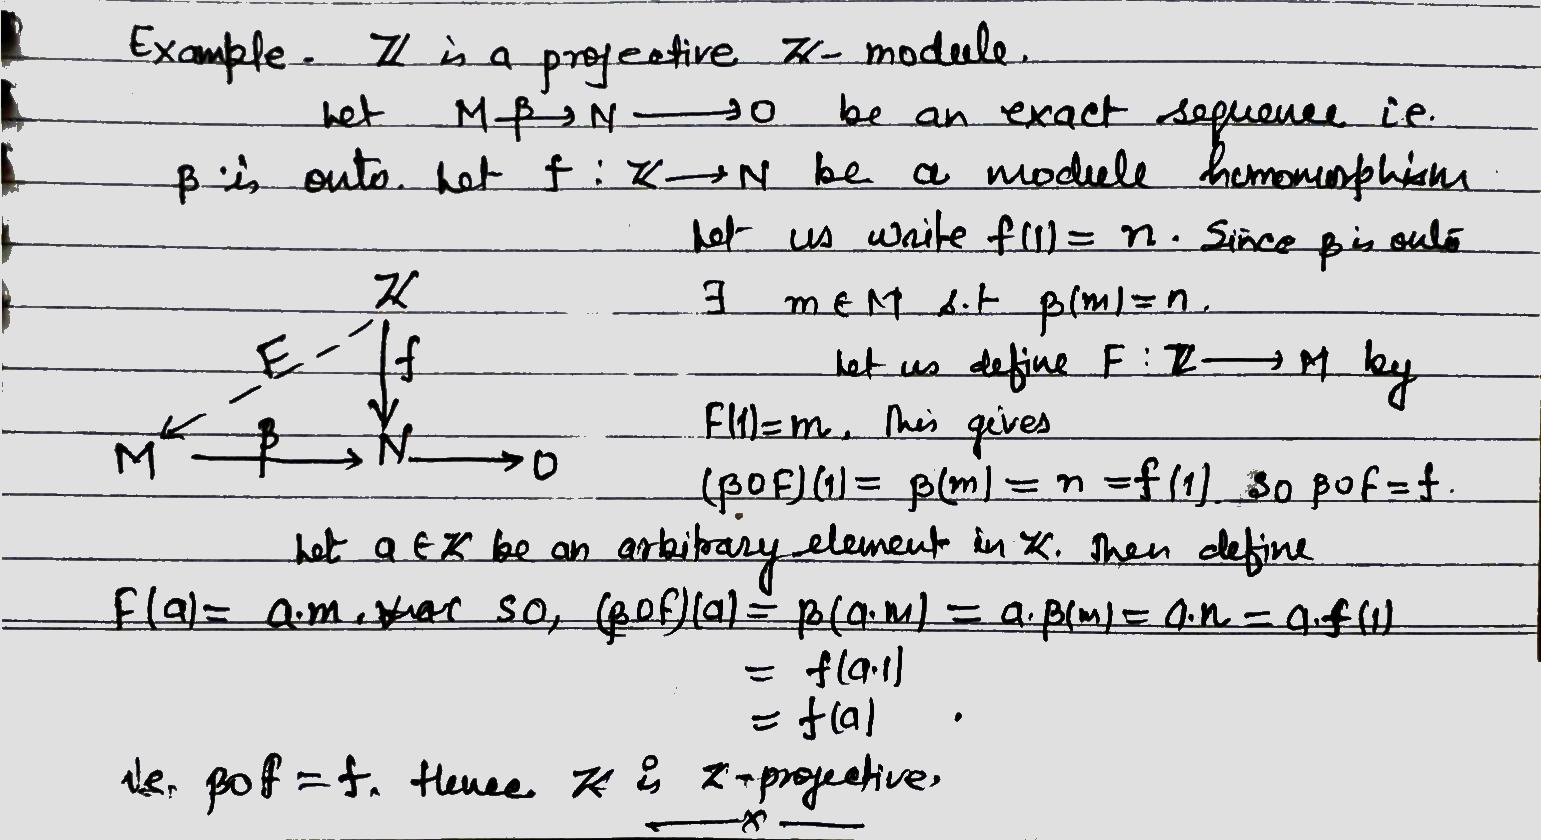 Example - ℤ is a projective ℤ- module.
Let M -β→ N ⟶ 0 be an exact sequence i.e.
β is onto. Let f : ℤ ⟶ N be a module homomorphism
Let us write f(1) = n. Since β is onto
∃ m ∈ M s.t β(m) = n.
Let us define F : ℤ ⟶ M by
F(1) = m. This gives
(βOF)(1) = β(m) = n = f(1). So βOF = f.
ℤ
F f
M β N 0
Let a ∈ ℤ be an arbitrary element in ℤ. Then define
F(a) = a.m. so, (βOF)(a) = β(a.m) = a.β(m) = a.n = a.f(1)
= f(a.1)
= f(a) .
i.e. βOF = f. Hence ℤ is ℤ-projective.